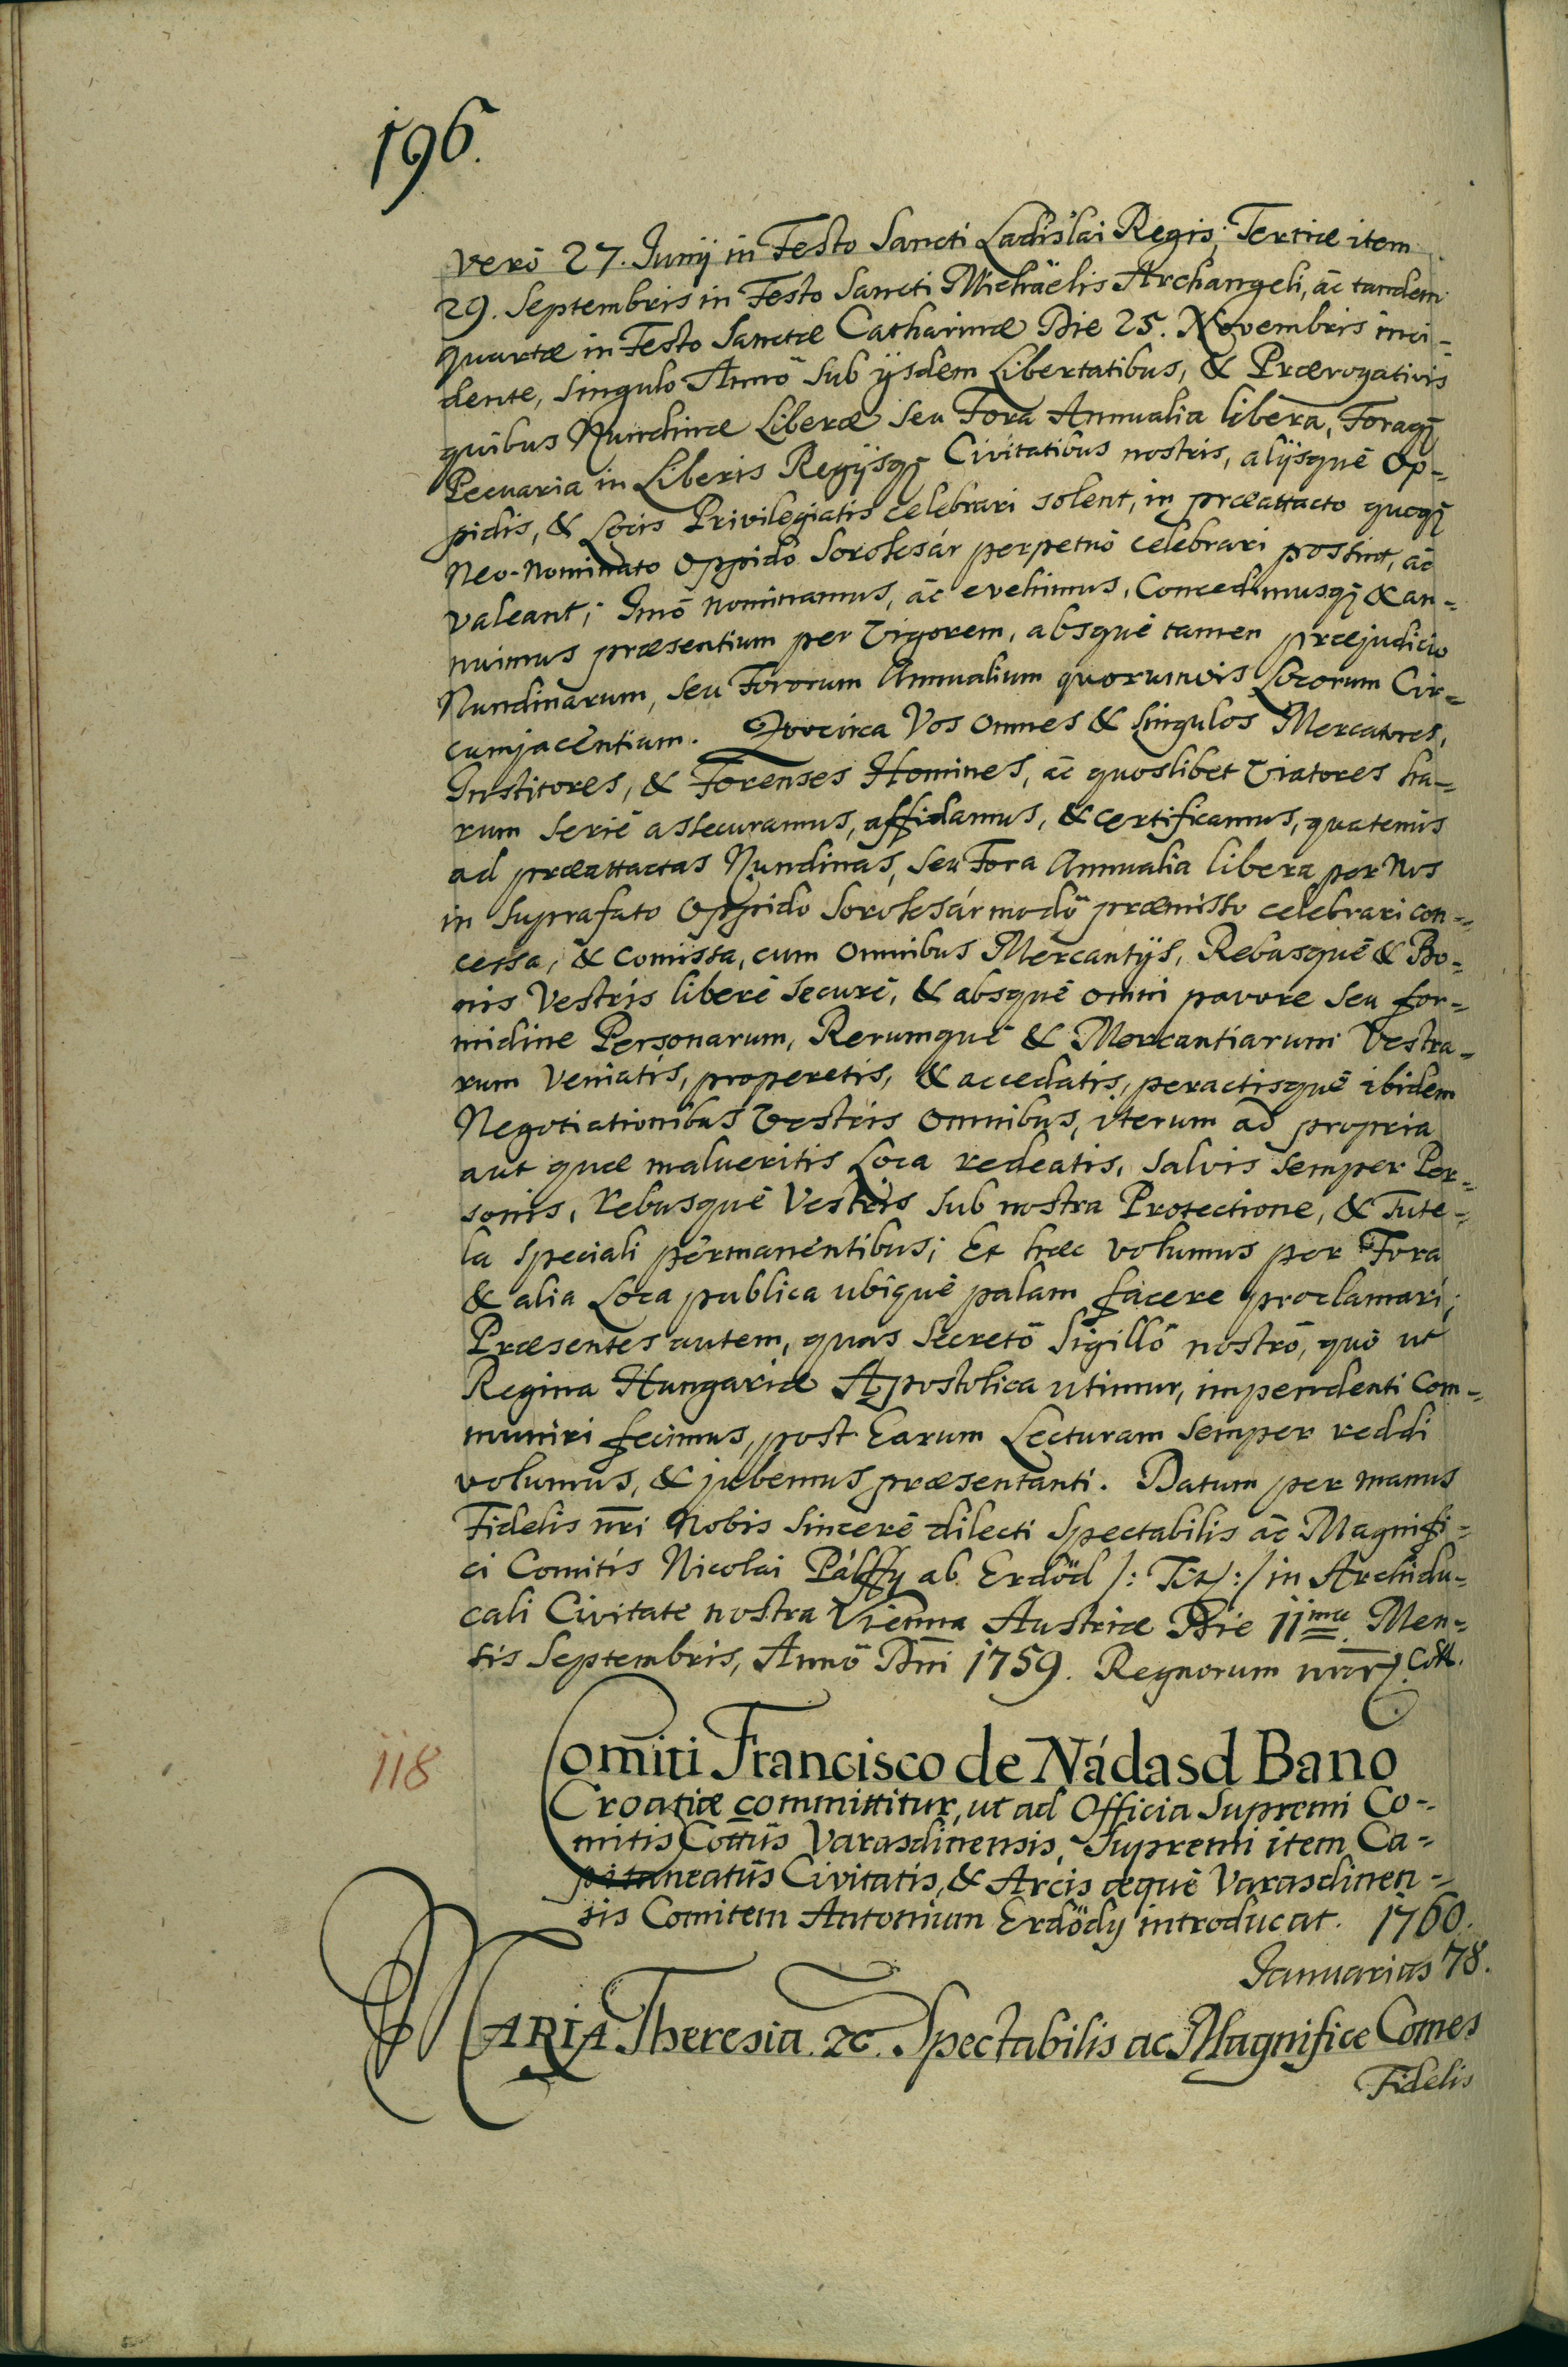 196.
verò 27. Junÿ in Festo Sancti Ladislai Regis; Tertiæ item
29. Septembris in Festo Sancti Michaëlis Archangeli, āc tandem
quartæ in Festo Sanctæ Catharinæ Die 25. Novembris inci=
dente, singulo Annō sub ÿsdem Libertatibus, & Prærogativis
quibus Nundinæ Liberæ seu Fora Annualia libera, Foraqȝ
Pecuaria in Liberis Regÿsqȝ Civitatibus nostris, alÿsquē Op=
pidis, & Locis Privilegiatis celebrari solent, in præattacto quoqȝ
Neo-Nominato Oppido Soroksár perpetuō celebrari possint, āc
valeant; Imō nominamus, āc evehimus, Concedimusqȝ & an=
nuimus præsentium per Vigorem, absquē tamen præjudicio
Nundinarum, seu Fororum Annualium quorumvis Locorum Cir=
cumjacentium. Quocirca Vos omnes & singulos Mercatores,
Institores, & Forenses Homines, āc quoslibet Viatores ha=
rum seriē assecuramus, affidamus, & certificamus, quatenus
ad præattactas Nundinas, seu Fora Annualia libera per Nos
in suprafato Oppido Soroksár modō præmisso celebrari con=
cessa, & comissa, cum omnibus Mercantÿs, Rebusquē & Bo=
nis Vestris liberē securē, & absquē omni pavore seu for=
midine Personarum, Rerumquē & Mercantiarum Vestra=
rum Veniatis, properetis, & accedatis, peractisquē ibidem
Negotiationibus Vestris omnibus, iterum ad propria
aut quæ malueritis Loca redeatis, salvis semper Per=
sonis, rebusquē Vestris sub nostra Protectione, & Tute=
la speciali permanentibus; Et hæc volumus per Fora
& alia Loca publica ubiquē palam facere proclamari;
Præsentes autem, quas Secretō Sigillō nostrō, quō ut
Regina Hungariæ Apostolica utimur, impendenti Com=
muniri fecimus, post Earum Lecturam semper reddi
volumus, & jubemus præsentanti. Datum per manus
Fidelis nr̄i Nobis sincerē dilecti Spectabilis āc Magnifi=
ci Comitis Nicolai Pálffy ab Erdöd /: Tit :/ in Archidu=
cali Civitate nostra Vienna Austriæ Die 11mæ Men=
sis Septembris, Annō Dn̄i 1759. Regnorum
118
Com̄iti Francisco de Nádasd Bano
Croatiæ committitur, ut ad Officia Supremi Co=
mitis Cottūs Varasdinensis, Supremi item Ca=
pitaneatūs Civitatis, & Arcis æquē Varasdinen=
sis Comitem Antonium Erdödy introducat. 1760.
Januarius 78.
MARIA Theresia. &c. Spectabilis ac Magnifice Comes
Fidelis